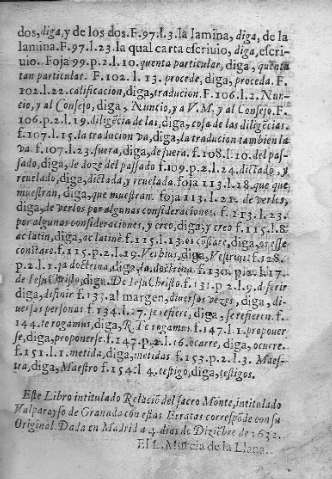 dos, diga, y de los dos. F.97.l.3. la lamina, diga, de la
lamina. F.97.l.23. la qual carta escriuio, diga, escri-
uio. Foja 99.p.2.l.10. quenta particular, diga, quēta
tan particular. F.102.l.13. procede, diga, proceda. F.
102.l.22. calificacion, diga, traducion. F.106.l.2. Nun-
cio, y al Consejo, diga, Nuncio, y a V.M. y al Consejo. F.
106.p.2.l.19. diligēcia de las, diga, cosa de las diligēcias.
f.107.l.15. la traducion va, diga, la traducion tambien la
va. f.107.l.23. fuera, diga, de fuera. f.108.l.10. del pas-
sado, diga, de doze del passado. f.109.p.2.l.24. dictado, y
reuelado, diga, dictada, y reuelada. foja 113.l.18. que que
muestran, diga, que muestran. foja 113.l.21. de verlos,
diga, de verlos por algunas consideraciones. f.113.l.23.
por algunas consideraciones, y creo, diga, y creo f.115.l.8.
ac latin, diga, ac latinè. f.115.l.13.
constare. f.115.p.2.l.19. Verbius, diga, f.128.
p.2.l.1. ja doctrina, diga, la doctrina. f.130. l.17.
de Iesu Christo, diga, De Iesu Christo. f.131.p.2.l.9. diferir
diga, definir f.137. al margen, diuersos vezes, diga, di-
uersas personas f.134.l.27. se refieri, diga, se refieren f.
144. te rogamus, diga, R. Te rogamus f.147.l.1. proponer
se, diga, proponerse. f.147.p.2.l.6. ocarre, diga, ocurre.
f.151.l.1. metida, diga, metidas f.153.p.2.l.3. Maes-
tra, diga, Maestro f.154.l.4. testigo, diga, testigos.
Este Libro intitulado Relaciō del sacro Monte, intitulado
Valparayso de Granada con estas Erratas correspōde con su
Original. Dada en Madrid a 4. dias de Diziēbre de 1632.
El L. Murcia de la Llana.